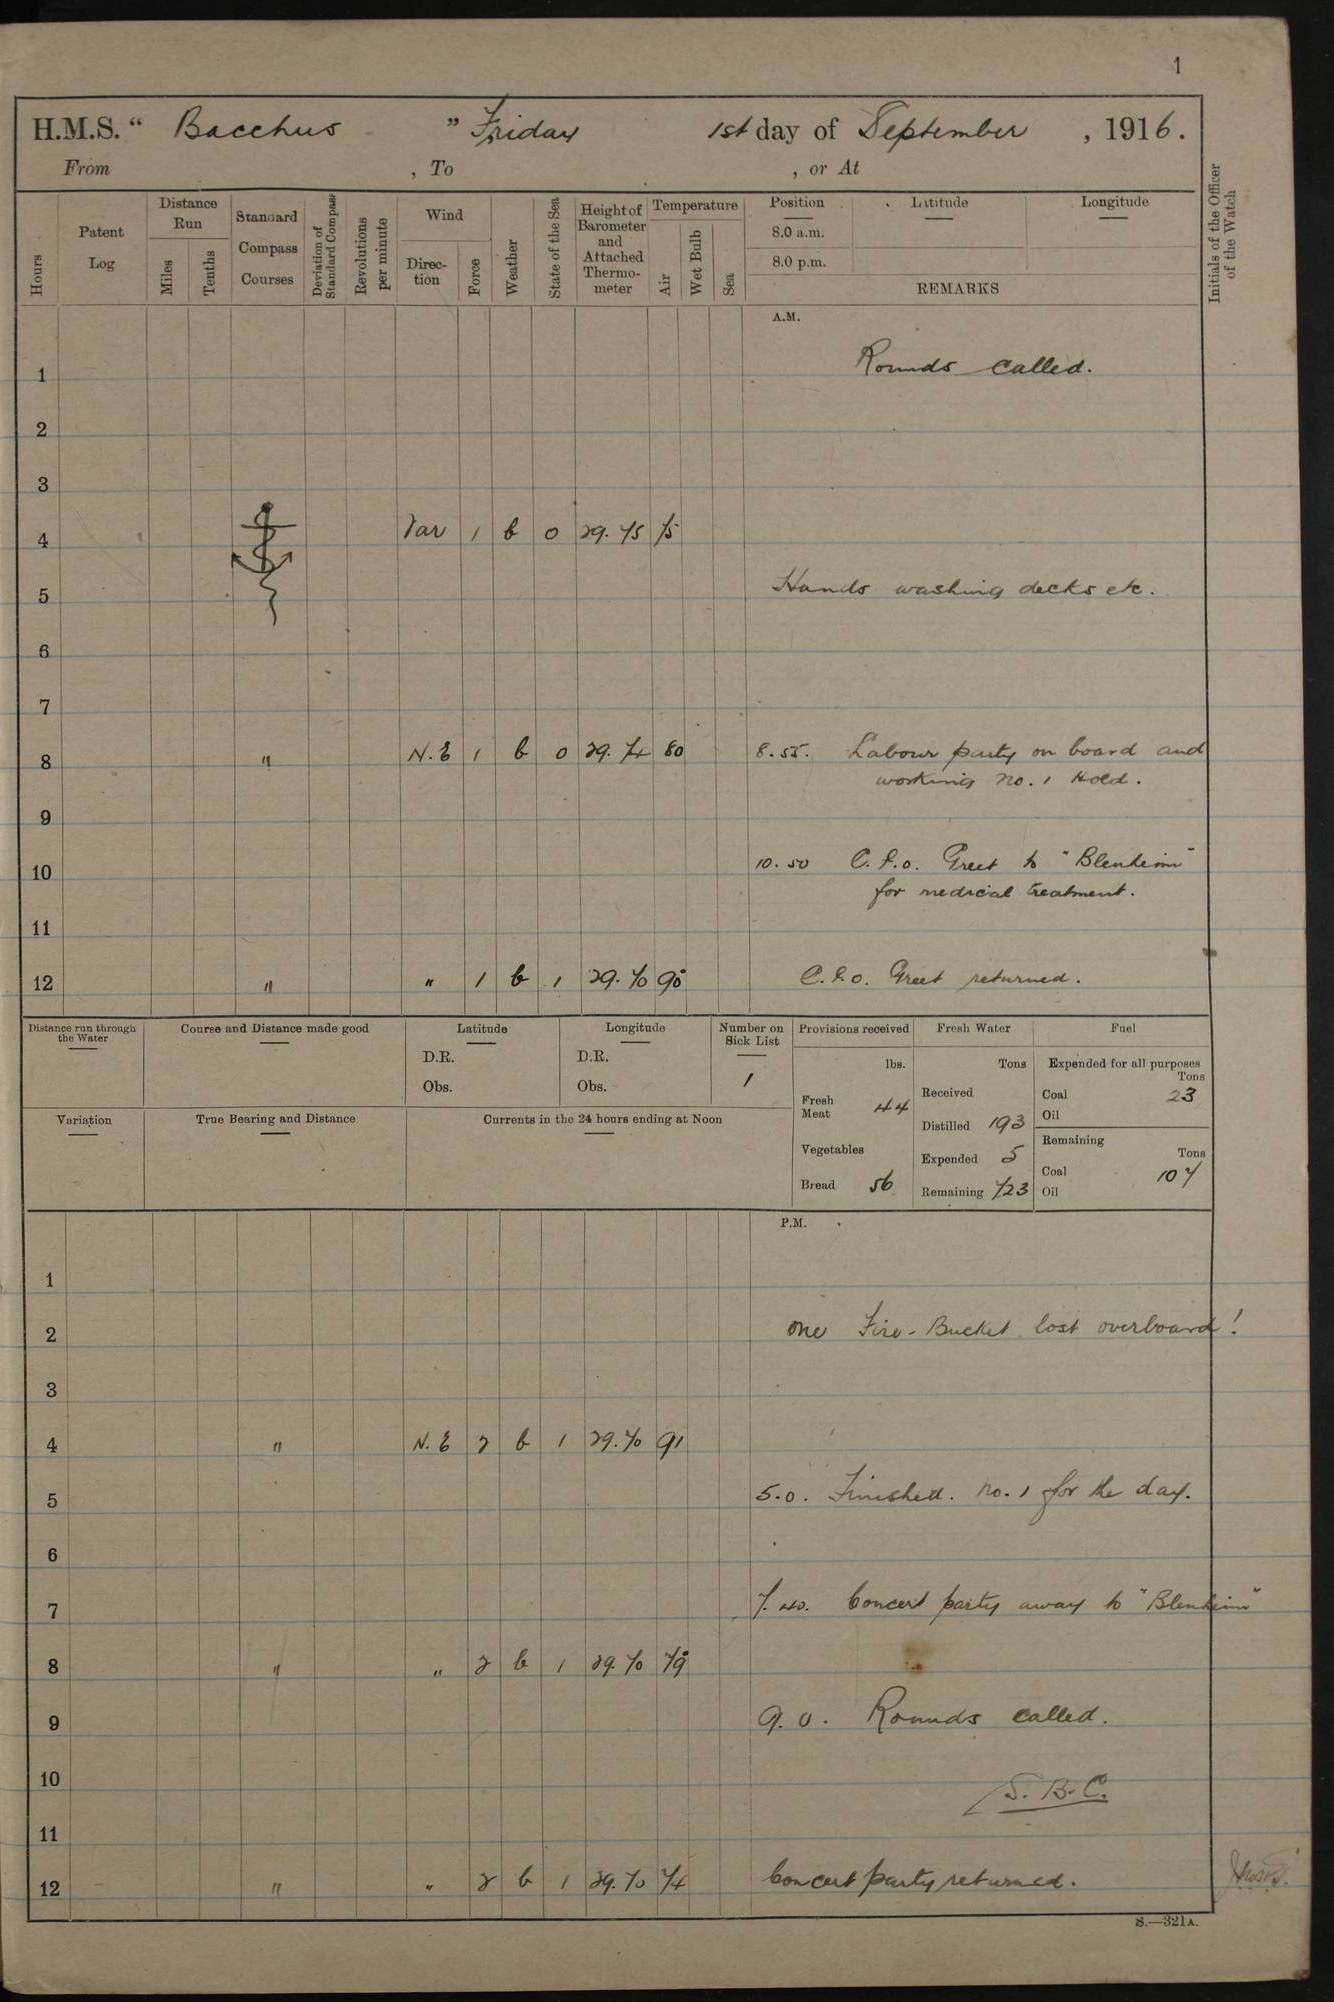 1
H.M.S. " Bacchus " Friday 1st day of September , 1916.
From , To , or At
Hours
Patent Log
Distance Run
Miles
Tenths
Standard Compass Courses
Deviation of Standard Compass
Revolutions per minute
Wind
Direction
Force
Weather
State of the Sea
Height of Barometer and Attached Thermometer
Temperature
Air
Wet Bulb
Sea
Position Latitude Longitude
8.0 a.m.
8.0 p.m.
REMARKS
Initials of the Officer of the Watch
A.M.
1 Rounds called.
2
3
4 Var 1 b 0 29.75 75
5 Hands washing decks etc.
6
7
8 " N.E 1 b 0 29.74 80 8.55. Labour party on board and
working No. 1 Hold.
9
10 10.50 C.P.O. Greet to "Blenheim"
for medical treatment.
11
12 " " 1 b 1 29.70 90 C.P.O. Greet returned.
Distance run through the Water
Course and Distance made good
Latitude
D.R.
Obs.
Longitude
D.R.
Obs.
Number on Sick List
1
Variation
True Bearing and Distance
Currents in the 24 hours ending at Noon
Provisions received
lbs.
Fresh Meat 44
Vegetables
Bread 56
Fresh Water
Tons
Received
Distilled 193
Expended 5
Remaining 723
Fuel
Expended for all purposes
Tons
Coal 23
Oil
Remaining
Tons
Coal 107
Oil
P.M.
1
2 One Fire-Bucket lost overboard!
3
4 " N.E 2 b 1 29.70 91
5 5.0. Finished. No. 1 for the day.
6
7 7.40. Concert party away to "Blenheim"
8 " " 2 b 1 29.70 79
9 9.0. Rounds called.
10 S.B.C.
11
12 " " 2 b 1 29.70 74 Concert party returned.
S.—321A.